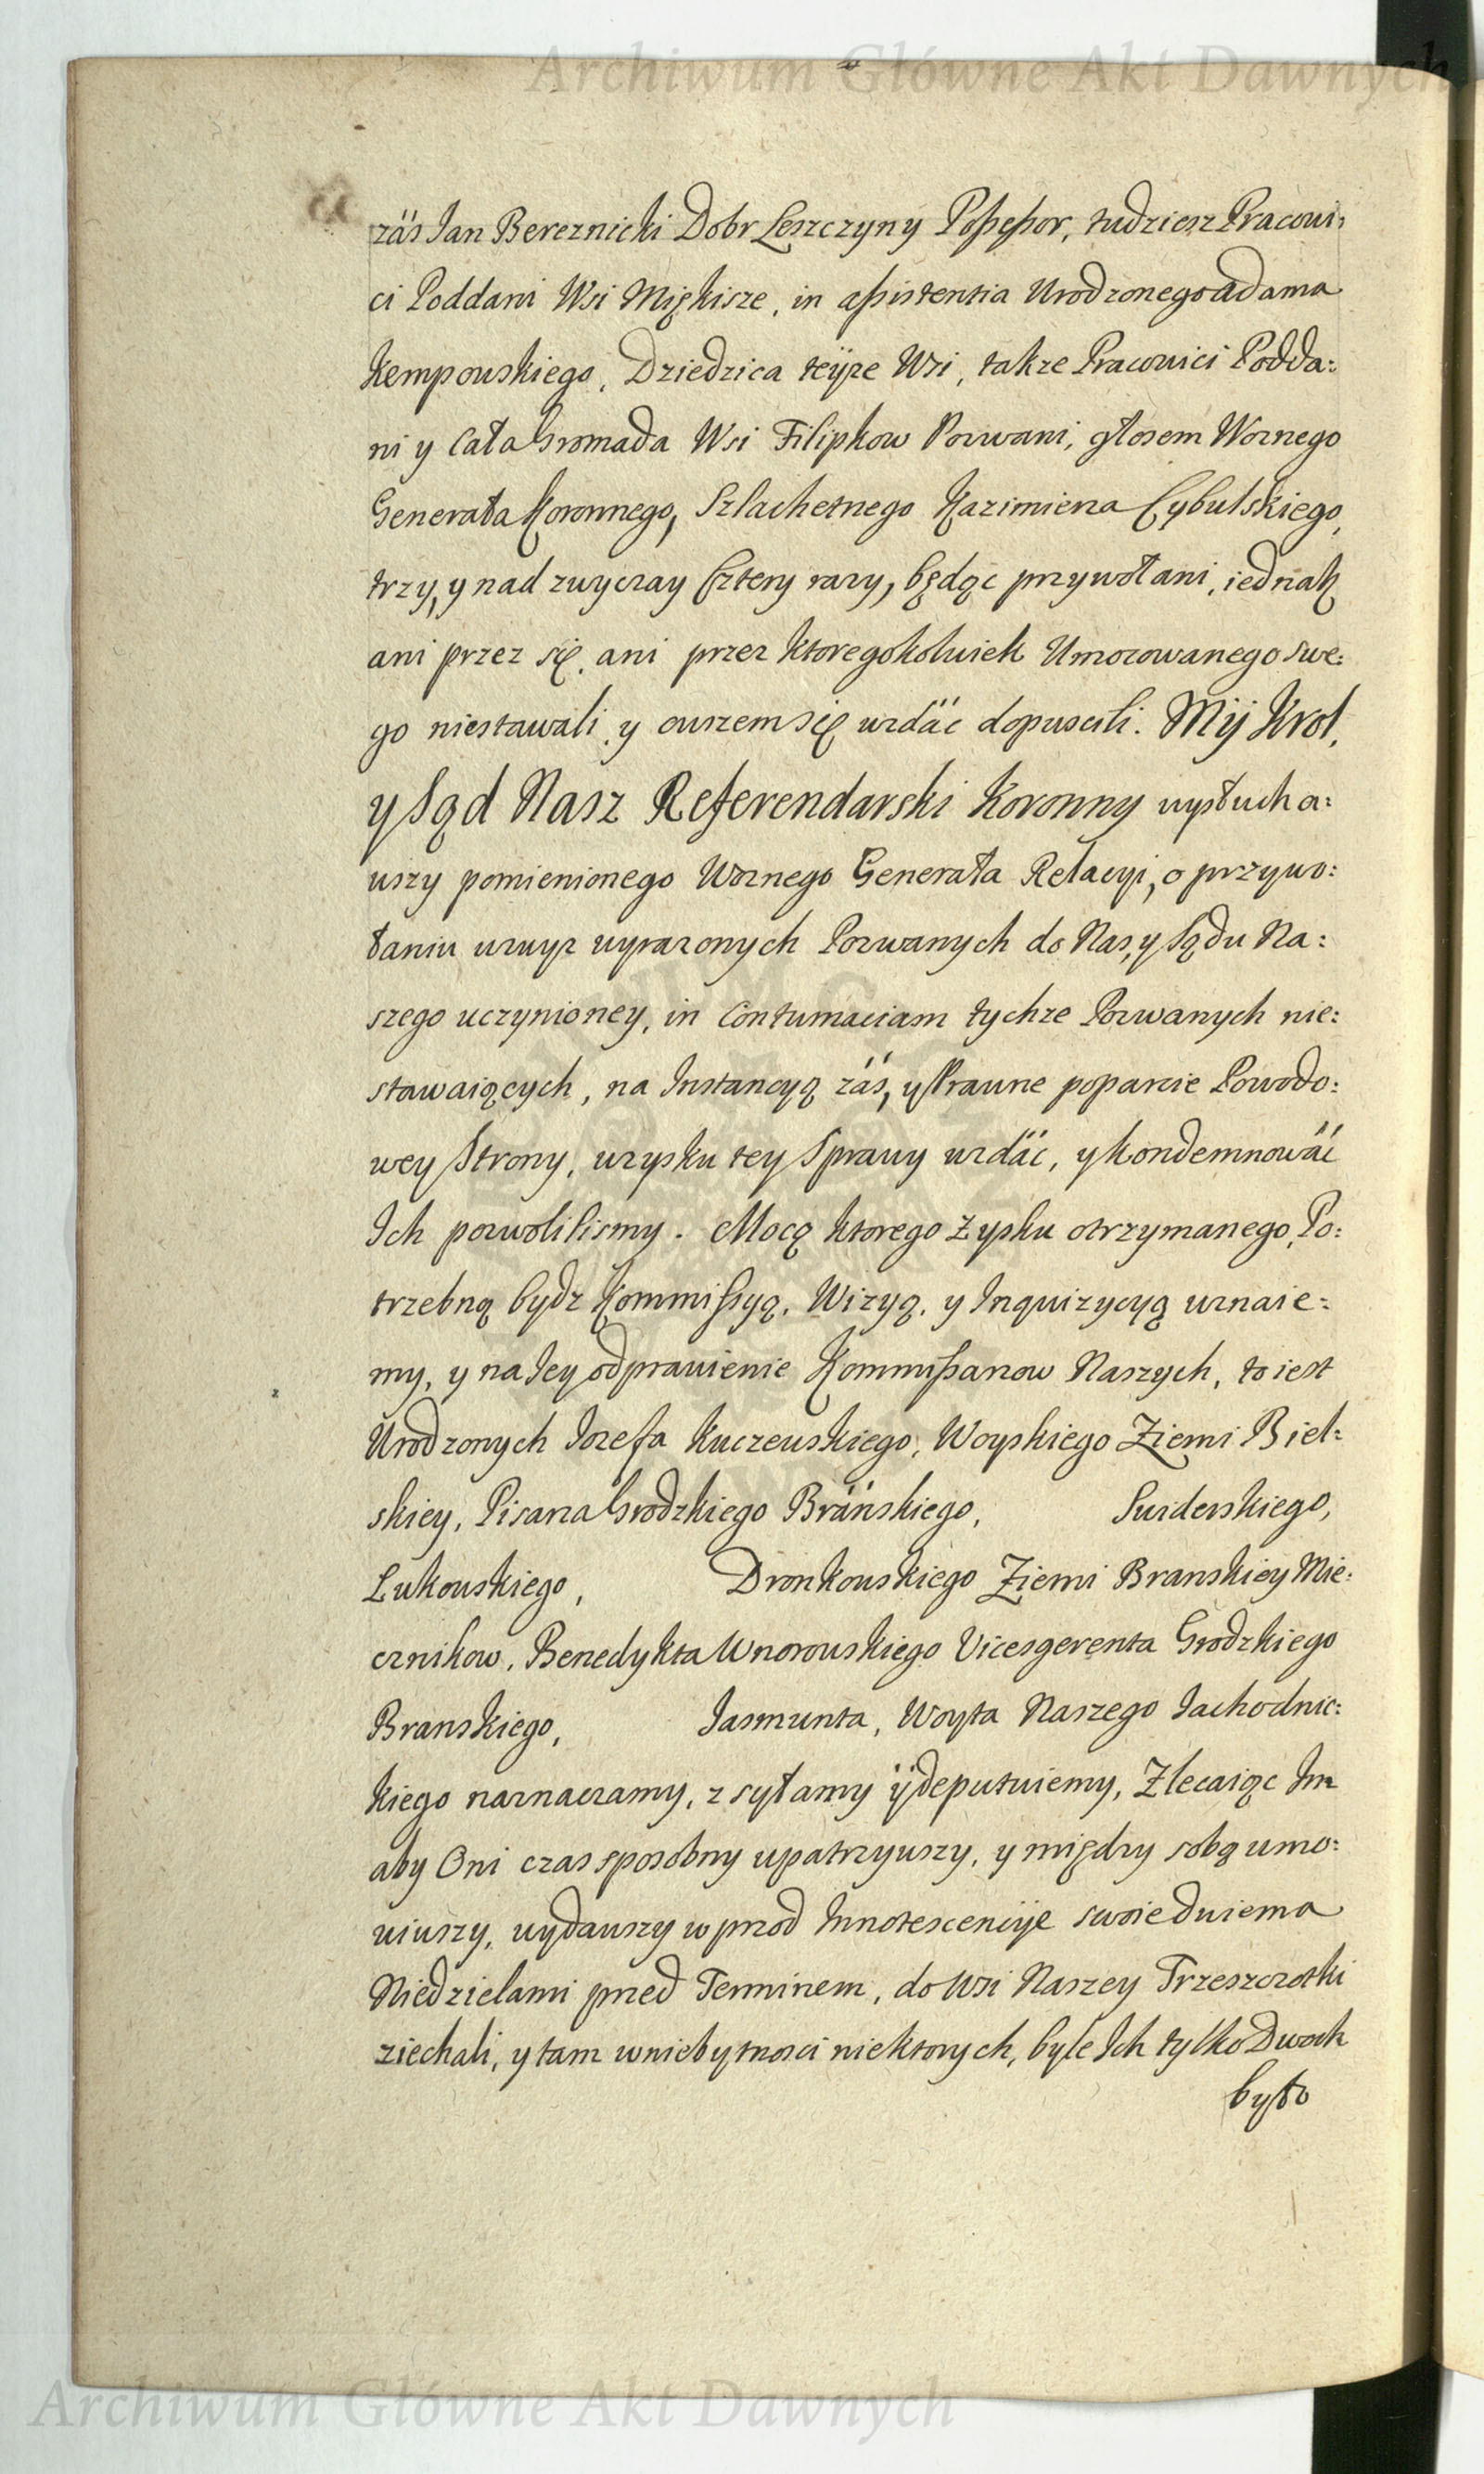 Archiwum Główne Akt Dawnych
zaś Jan Bereznicki Dobr Leszczyny Possessor, tudziesz Pracowi:
ci Poddani Wsi Miękisze, in assistentia Urodzonego Adama
Kempowskiego, Dziedzica teyże Wsi, także Pracowici Podda:
ni y Cała Gromada Wsi Filipkow Pozwani, głosem Woznego
Generała Koronnego, Szlachetnego Kazimierza Cybulskiego,
trzy, y nad zwyczay Cztery razy, będąc przywołani, iednak
ani przez się, ani przez ktoregokolwiek Umocowanego swe:
go niestawali, y owszem się wzdać dopuscili. My Krol,
y Sąd Nasz Referendarski Koronny wysłucha:
wszy pomienionego Woznego Generała Relacyi, o przywo:
łaniu wzwyż wyrażonych Pozwanych do Nas, y Sądu Na:
szego uczynioney, in Contumaciam tychże Pozwanych nie:
stawaiących, na Instancyą zaś, y Prawne poparcie Powodo:
wey Strony, w zysku tey Sprawy wzdać, y Kondemnować
Ich pozwolilismy. Mocą ktorego Zysku otrzymanego, Po:
trzebną bydz Kommissyą, Wizyą, y Inquizycyą uznaie:
my, y na Iey odprawienie Kommissarzow Naszych, to iest
Urodzonych Jozefa Kuczewskiego, Woyskiego Ziemi Biel:
skiey, Pisarza Grodzkiego Brańskiego, Swiderskiego,
Lukowskiego, Dronkowskiego Ziemi Branskiey Mie:
cznikow, Benedykta Wnorowskiego Vicesgerenta Grodzkiego
Branskiego, Jasmunta, Woyta Naszego Jachodnic:
kiego naznaczamy, zsyłamy y deputuiemy, Zlecaiąc Im
aby Oni czas sposobny upatrzywszy, y między sobą umo:
wiwszy, wydawszy wprzod Innotescencye swoie dwiema
Niedzielami przed Terminem, do Wsi Naszey Trzeszczotki
ziechali, y tam w niebytnosci niektorych, byle Ich tylko Dwoch
było
Archiwum Główne Akt Dawnych